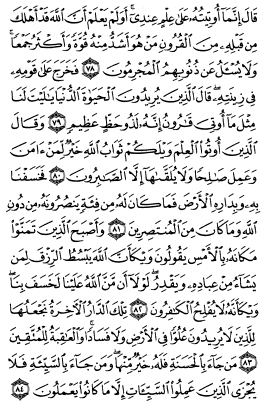 قَالَ إِنَّمَا أُوتِيتُهُ عَلَىٰ عِلْمٍ عِندِي ۚ أَوَلَمْ يَعْلَمْ أَنَّ اللَّهَ قَدْ أَهْلَكَ
مِن قَبْلِهِ مِنَ الْقُرُونِ مَنْ هُوَ أَشَدُّ مِنْهُ قُوَّةً وَأَكْثَرُ جَمْعًا ۚ
وَلَا يُسْأَلُ عَن ذُنُوبِهِمُ الْمُجْرِمُونَ ٧٨ فَخَرَجَ عَلَىٰ قَوْمِهِ
فِي زِينَتِهِ ۖ قَالَ الَّذِينَ يُرِيدُونَ الْحَيَاةَ الدُّنْيَا يَا لَيْتَ لَنَا
مِثْلَ مَا أُوتِيَ قَارُونُ إِنَّهُ لَذُو حَظٍّ عَظِيمٍ ٧٩ وَقَالَ
الَّذِينَ أُوتُوا الْعِلْمَ وَيْلَكُمْ ثَوَابُ اللَّهِ خَيْرٌ لِّمَنْ ءَامَنَ
وَعَمِلَ صَالِحًا وَلَا يُلَقَّاهَا إِلَّا الصَّابِرُونَ ٨٠ فَخَسَفْنَا
بِهِ وَبِدَارِهِ الْأَرْضَ فَمَا كَانَ لَهُ مِن فِئَةٍ يَنصُرُونَهُ مِن دُونِ
اللَّهِ وَمَا كَانَ مِنَ الْمُنتَصِرِينَ ٨١ وَأَصْبَحَ الَّذِينَ تَمَنَّوْا
مَكَانَهُ بِالْأَمْسِ يَقُولُونَ وَيْكَأَنَّ اللَّهَ يَبْسُطُ الرِّزْقَ لِمَن
يَشَاءُ مِنْ عِبَادِهِ وَيَقْدِرُ ۖ لَوْلَا أَن مَّنَّ اللَّهُ عَلَيْنَا لَخَسَفَ بِنَا ۖ
وَيْكَأَنَّهُ لَا يُفْلِحُ الْكَافِرُونَ ٨٢ تِلْكَ الدَّارُ الْآخِرَةُ نَجْعَلُهَا
لِلَّذِينَ لَا يُرِيدُونَ عُلُوًّا فِي الْأَرْضِ وَلَا فَسَادًا ۚ وَالْعَاقِبَةُ لِلْمُتَّقِينَ
٨٣ مَن جَاءَ بِالْحَسَنَةِ فَلَهُ خَيْرٌ مِّنْهَا ۖ وَمَن جَاءَ بِالسَّيِّئَةِ فَلَا
يُجْزَى الَّذِينَ عَمِلُوا السَّيِّئَاتِ إِلَّا مَا كَانُوا يَعْمَلُونَ ٨٤